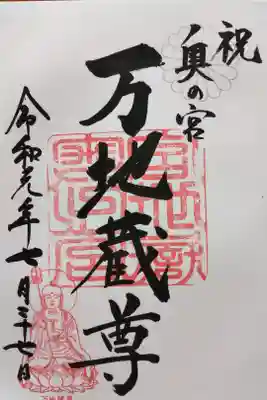 祝
奥の宮
万地蔵尊
令和元年七月二十七日